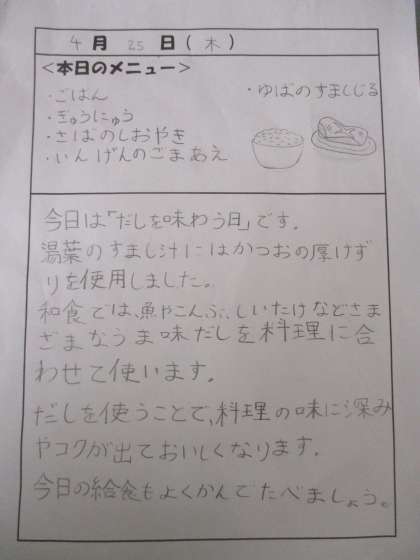 4月25日(木)
<本日のメニュー>
・ごはん
・ぎゅうにゅう
・さばのしおやき
・いんげんのごまあえ
・ゆばのすましじる
今日は「だしを味わう日」です。
湯葉のすまし汁にはかつおの厚けず
りを使用しました。
和食では、魚やこんぶ、しいたけなどさま
ざまなうま味だしを料理に合
わせて使います。
だしを使うことで、料理の味に深み
やコクが出ておいしくなります。
今日の給食もよくかんでたべましょう。